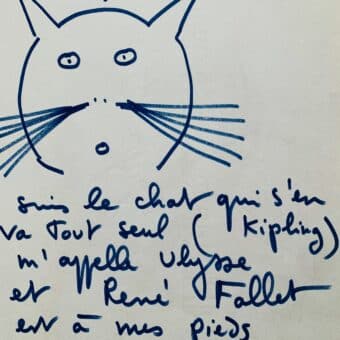 suis le chat qui s'en
va tout seul (Kipling)
m'appelle Ulysse
et René Fallet
est à mes pieds